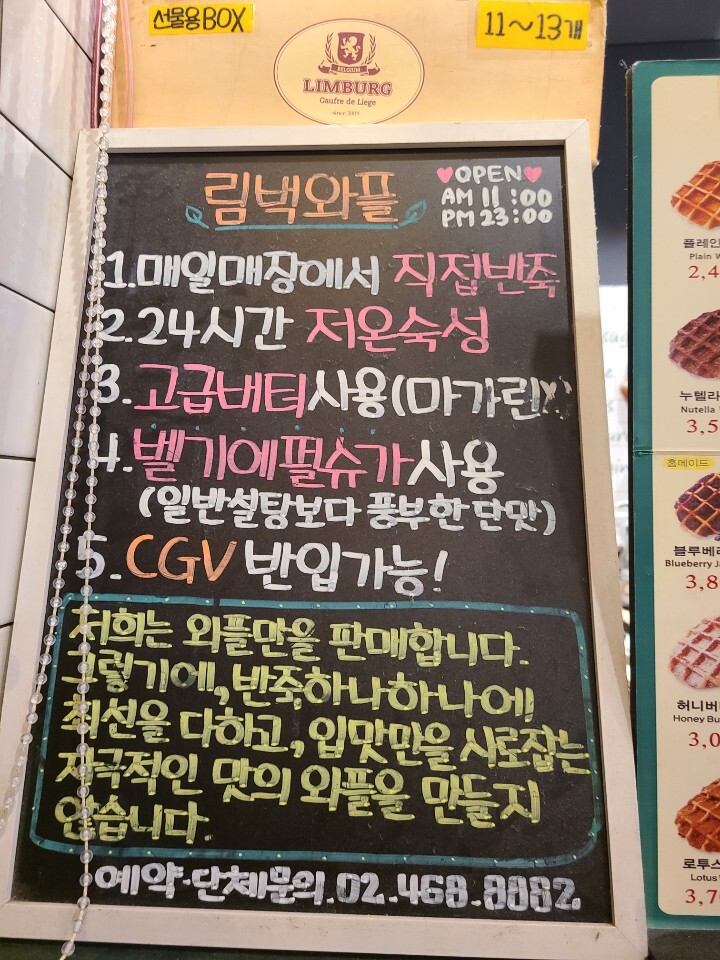 선물용BOX
11~13개
BELGIUM
LIMBURG
Gaufre de Liege
since 2009
림벅와플
♥OPEN♥
AM 11:00
PM 23:00
1.매일매장에서 직접반죽
2.24시간 저온숙성
3.고급버터사용(마가린X)
4.벨기에펄슈가사용
(일반설탕보다 풍부한 단맛)
5.CGV 반입가능!
저희는 와플만을 판매합니다.
그렇기에, 반죽하나하나에
최선을 다하고, 입맛만을 사로잡는
자극적인 맛의 와플을 만들지
않습니다.
예약·단체문의.02.468.8882.
플레인
Plain W
2,4
누텔라
Nutella
3,5
홈메이드
블루베리
Blueberry Ja
3,8
허니버
Honey Bu
3,0
로투스
Lotus
3,7